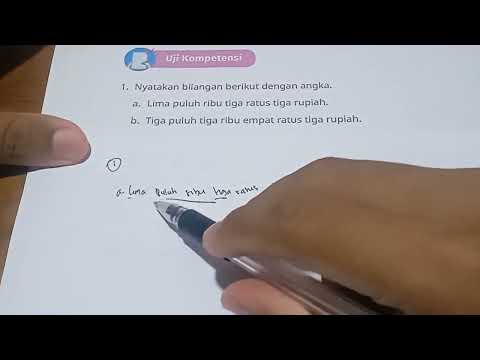 Uji Kompetensi
1. Nyatakan bilangan berikut dengan angka.
a. Lima puluh ribu tiga ratus tiga rupiah.
b. Tiga puluh tiga ribu empat ratus tiga rupiah.
1
a. Lima puluh ribu tiga ratus